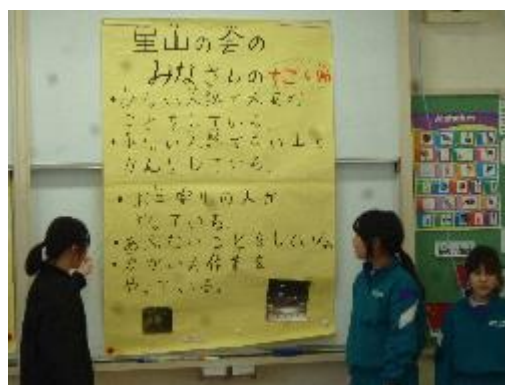 里山の会の
みなさんのすごい所
・少ない人数で大変な
ことをしている。
・少ない人数で広い山を
かんりしている。
・お年寄りの人が
やっている。
・あぶないことをしている。
作業を
やっている。